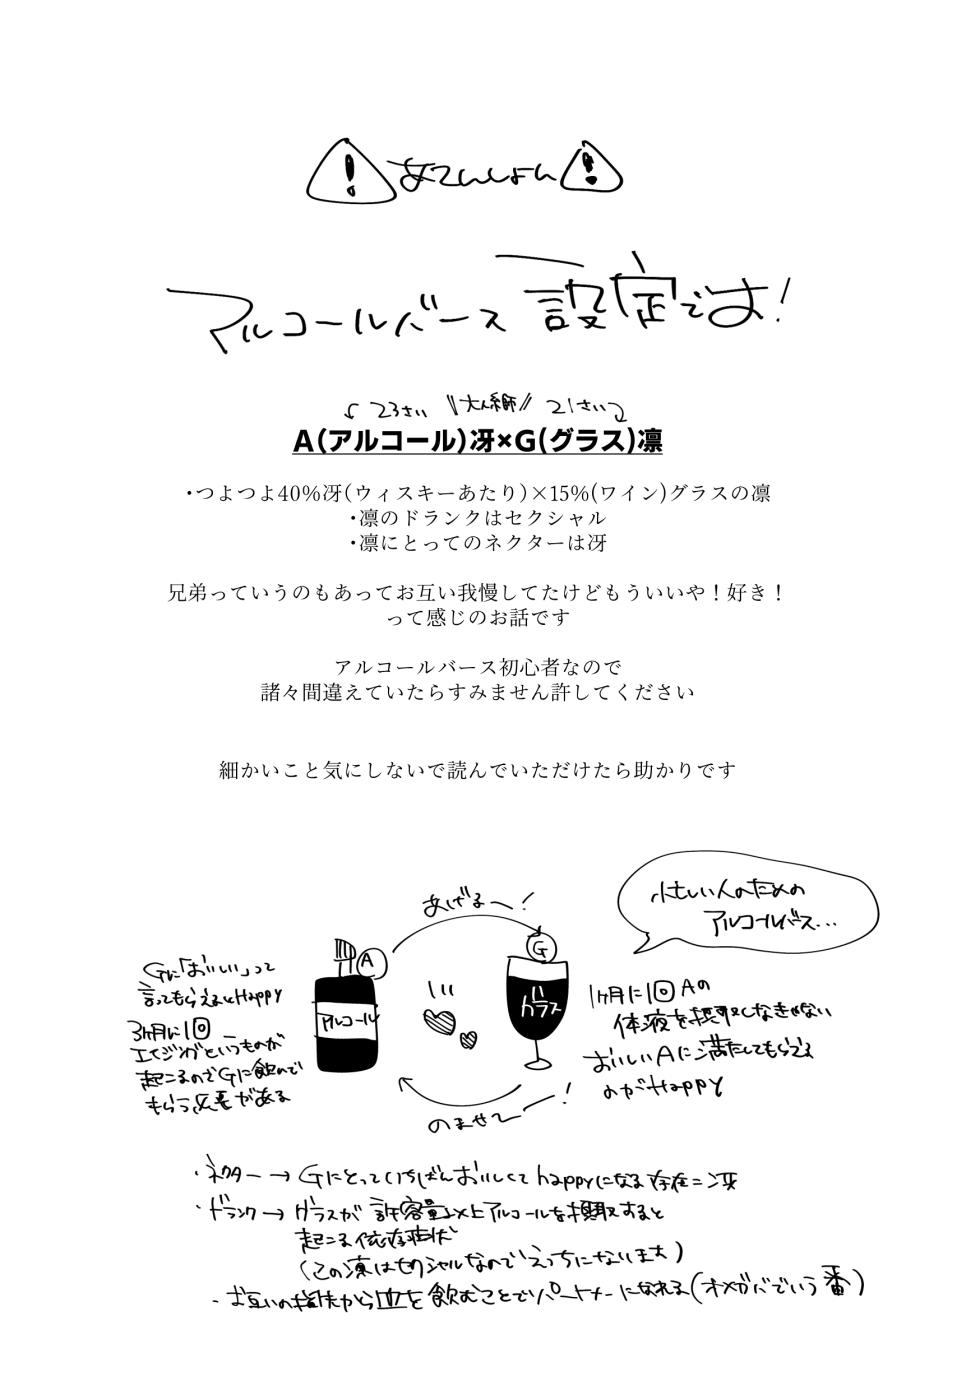 あてんしょん
アルコールバース設定です!
23さい \\大人糸師// 21さい
A(アルコール)冴×G(グラス)凛
・つよつよ40%冴(ウィスキーあたり)×15%(ワイン)グラスの凛
・凛のドランクはセクシャル
・凛にとってのネクターは冴
兄弟っていうのもあってお互い我慢してたけどもういいや!好き!
って感じのお話です
アルコールバース初心者なので
諸々間違えていたらすみません許してください
細かいこと気にしないで読んでいただけたら助かりです
忙しい人のための
アルコールバース…
あげる〜!
A
G
アルコール
グラス
のませて〜!
Gに「おいしい」って
言ってもらえるとHappy
3ヶ月に1回
エイジングというものが
起こるのでGに飲んで
もらう必要がある
1ヶ月に1回Aの
体液を摂取しなきゃいけない
おいしいAに満たしてもらえる
のがHappy
・ネクター→Gにとっていちばんおいしくてhappyになる存在=冴
・ドランク→グラスが許容量以上アルコールを摂取すると
起こる依存症状
(この凛はセクシャルなのでえっちになります)
・お互いの指先から血を飲むことでパートナーになれる(オメガバでいう番)